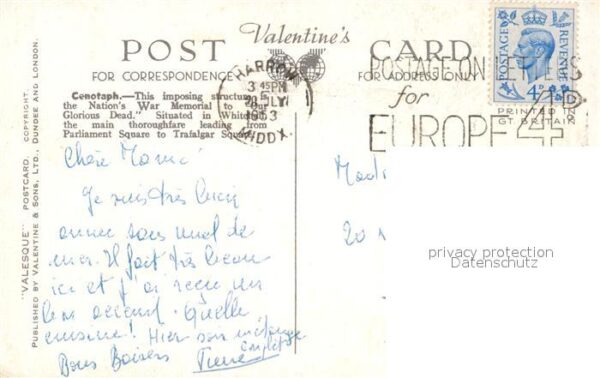 Valentine's
POST CARD
FOR CORRESPONDENCE FOR ADDRESS ONLY
Cenotaph.—This imposing structure is
the Nation's War Memorial to "Our
Glorious Dead." Situated in Whitehall
the main thoroughfare leading from
Parliament Square to Trafalgar Square
HARROW
3 45PM
20 JLY
1953
MIDDX.
POSTAGE ON LETTERS
for
EUROPE 4D
POSTAGE REVENUE
4D
PRINTED IN
GT BRITAIN
"VALESQUE" POSTCARD. COPYRIGHT.
PUBLISHED BY VALENTINE & SONS, LTD., DUNDEE AND LONDON.
Chère
Je suis très bien
sans mal de
mer. Il fait très beau
ici et j'ai reçu un
bon accueil. Quelle
cuisine! Hier son mélange
anglais
Bons Baisers Pierre
20
privacy protection
Datenschutz